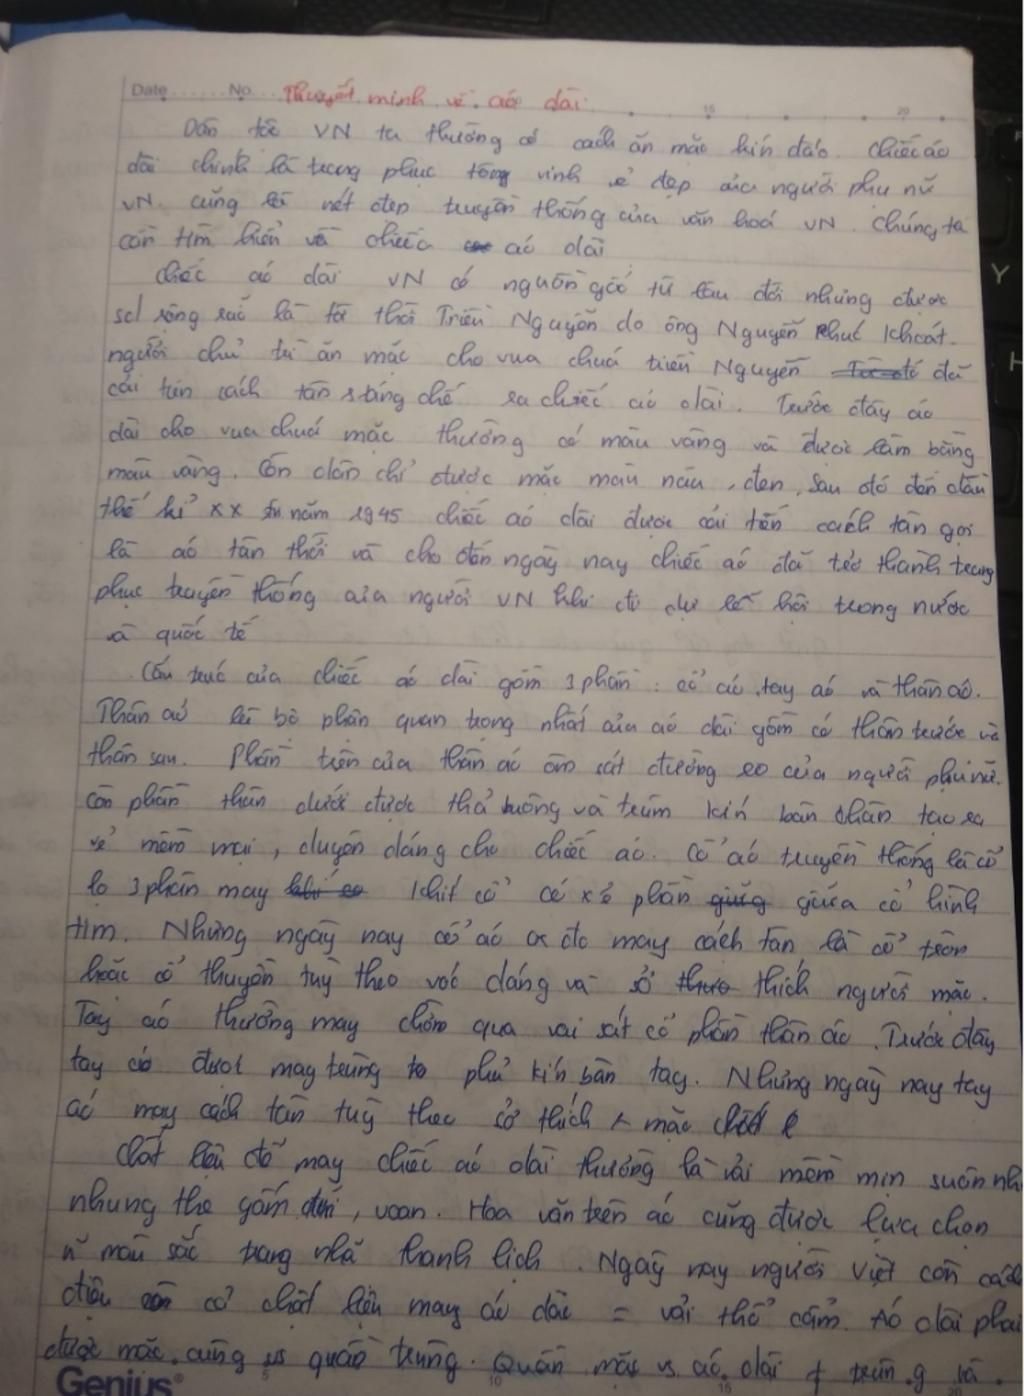 Date No. Thuyết minh về áo dài
15 20
Dân tộc VN ta thường có cách ăn mặc kín đáo. chiếc áo
dài chính là trang phục tông vinh vẻ đẹp của người phụ nữ
VN. cũng là nét đẹp truyền thống của văn hoá VN. chúng ta
cần tìm hiểu về chiếc áo dài
chiếc áo dài VN có nguồn gốc từ lâu đời nhưng được
sd rộng rãi là từ thời Triều Nguyễn do ông Nguyễn Phúc Khoát
người chủ trì ăn mặc cho vua chúa triều Nguyễn đã
cải tiến cách tân sáng chế ra chiếc áo dài. Trước đây áo
dài cho vua chúa mặc thường có màu vàng và được làm bằng
màu vàng. Còn dân chỉ được mặc màu nâu, đen, sau đó đến đầu
thế kỉ XX năm 1945 chiếc áo dài được cải tiến cách tân gọi
là áo tân thời và cho đến ngày nay chiếc áo đã trở thành trang
phục truyền thống của người VN khi đi dự lễ hội trong nước
và quốc tế
Cấu trúc của chiếc áo dài gồm 3 phần: cổ áo, tay áo và thân áo.
Thân áo là bộ phận quan trọng nhất của áo dài gồm có thân trước và
thân sau. Phần trên của thân áo ôm sát đường eo của người phụ nữ.
còn phần thân dưới được thả buông và trùm kín bàn chân tạo ra
vẻ mềm mại, duyên dáng cho chiếc áo. Cổ áo truyền thống là cổ
lọ 3 phân may khít cổ có xẻ phần giữa cổ hình
tim. Nhưng ngày nay cổ áo may cách tân là cổ tròn
hoặc cổ thuyền tuỳ theo vóc dáng và sở thích người mặc.
Tay áo thường may chờm qua vai sát cổ phần thân áo. Trước đây
tay áo được may trùng to phủ kín bàn tay. Nhưng ngày nay tay
áo may cách tân tuỳ theo sở thích mặc
Chất liệu để may chiếc áo dài thường là vải mềm mịn suôn như
nhung the gấm, voan. Hoa văn trên áo cũng được lựa chọn
màu sắc trang nhã thanh lịch. Ngày nay người Việt còn cách
điệu cả chất liệu may áo dài = vải thổ cẩm. Áo dài phải
được mặc cùng vs quần trùng. Quần mặc vs áo dài
Genius® 5 10 15